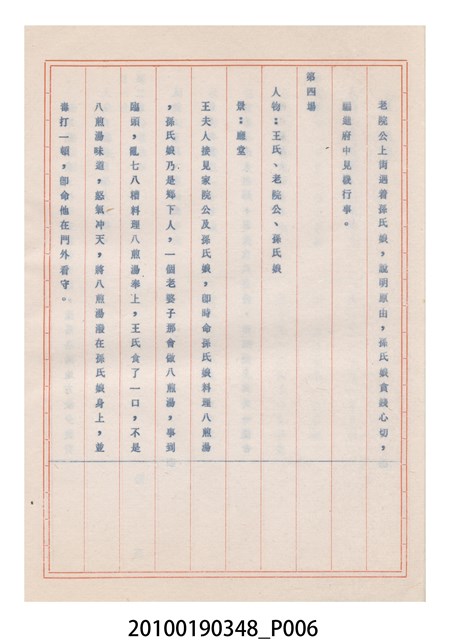 老院公上街遇着孫氏娘,說明原由,孫氏娘貪錢心切,
願進府中見機行事。
第四場
人物:王氏、老院公、孫氏娘
景:廳堂
王夫人接見家院公及孫氏娘,即時命孫氏娘料理八煎湯
,孫氏娘乃是鄉下人,一個老婆子那會做八煎湯,事到
臨頭,亂七八糟料理八煎湯奉上,王氏食了一口,不是
八煎湯味道,怒氣冲天,將八煎湯潑在孫氏娘身上,並
毒打一頓,即命他在門外看守。
20100190348_P006